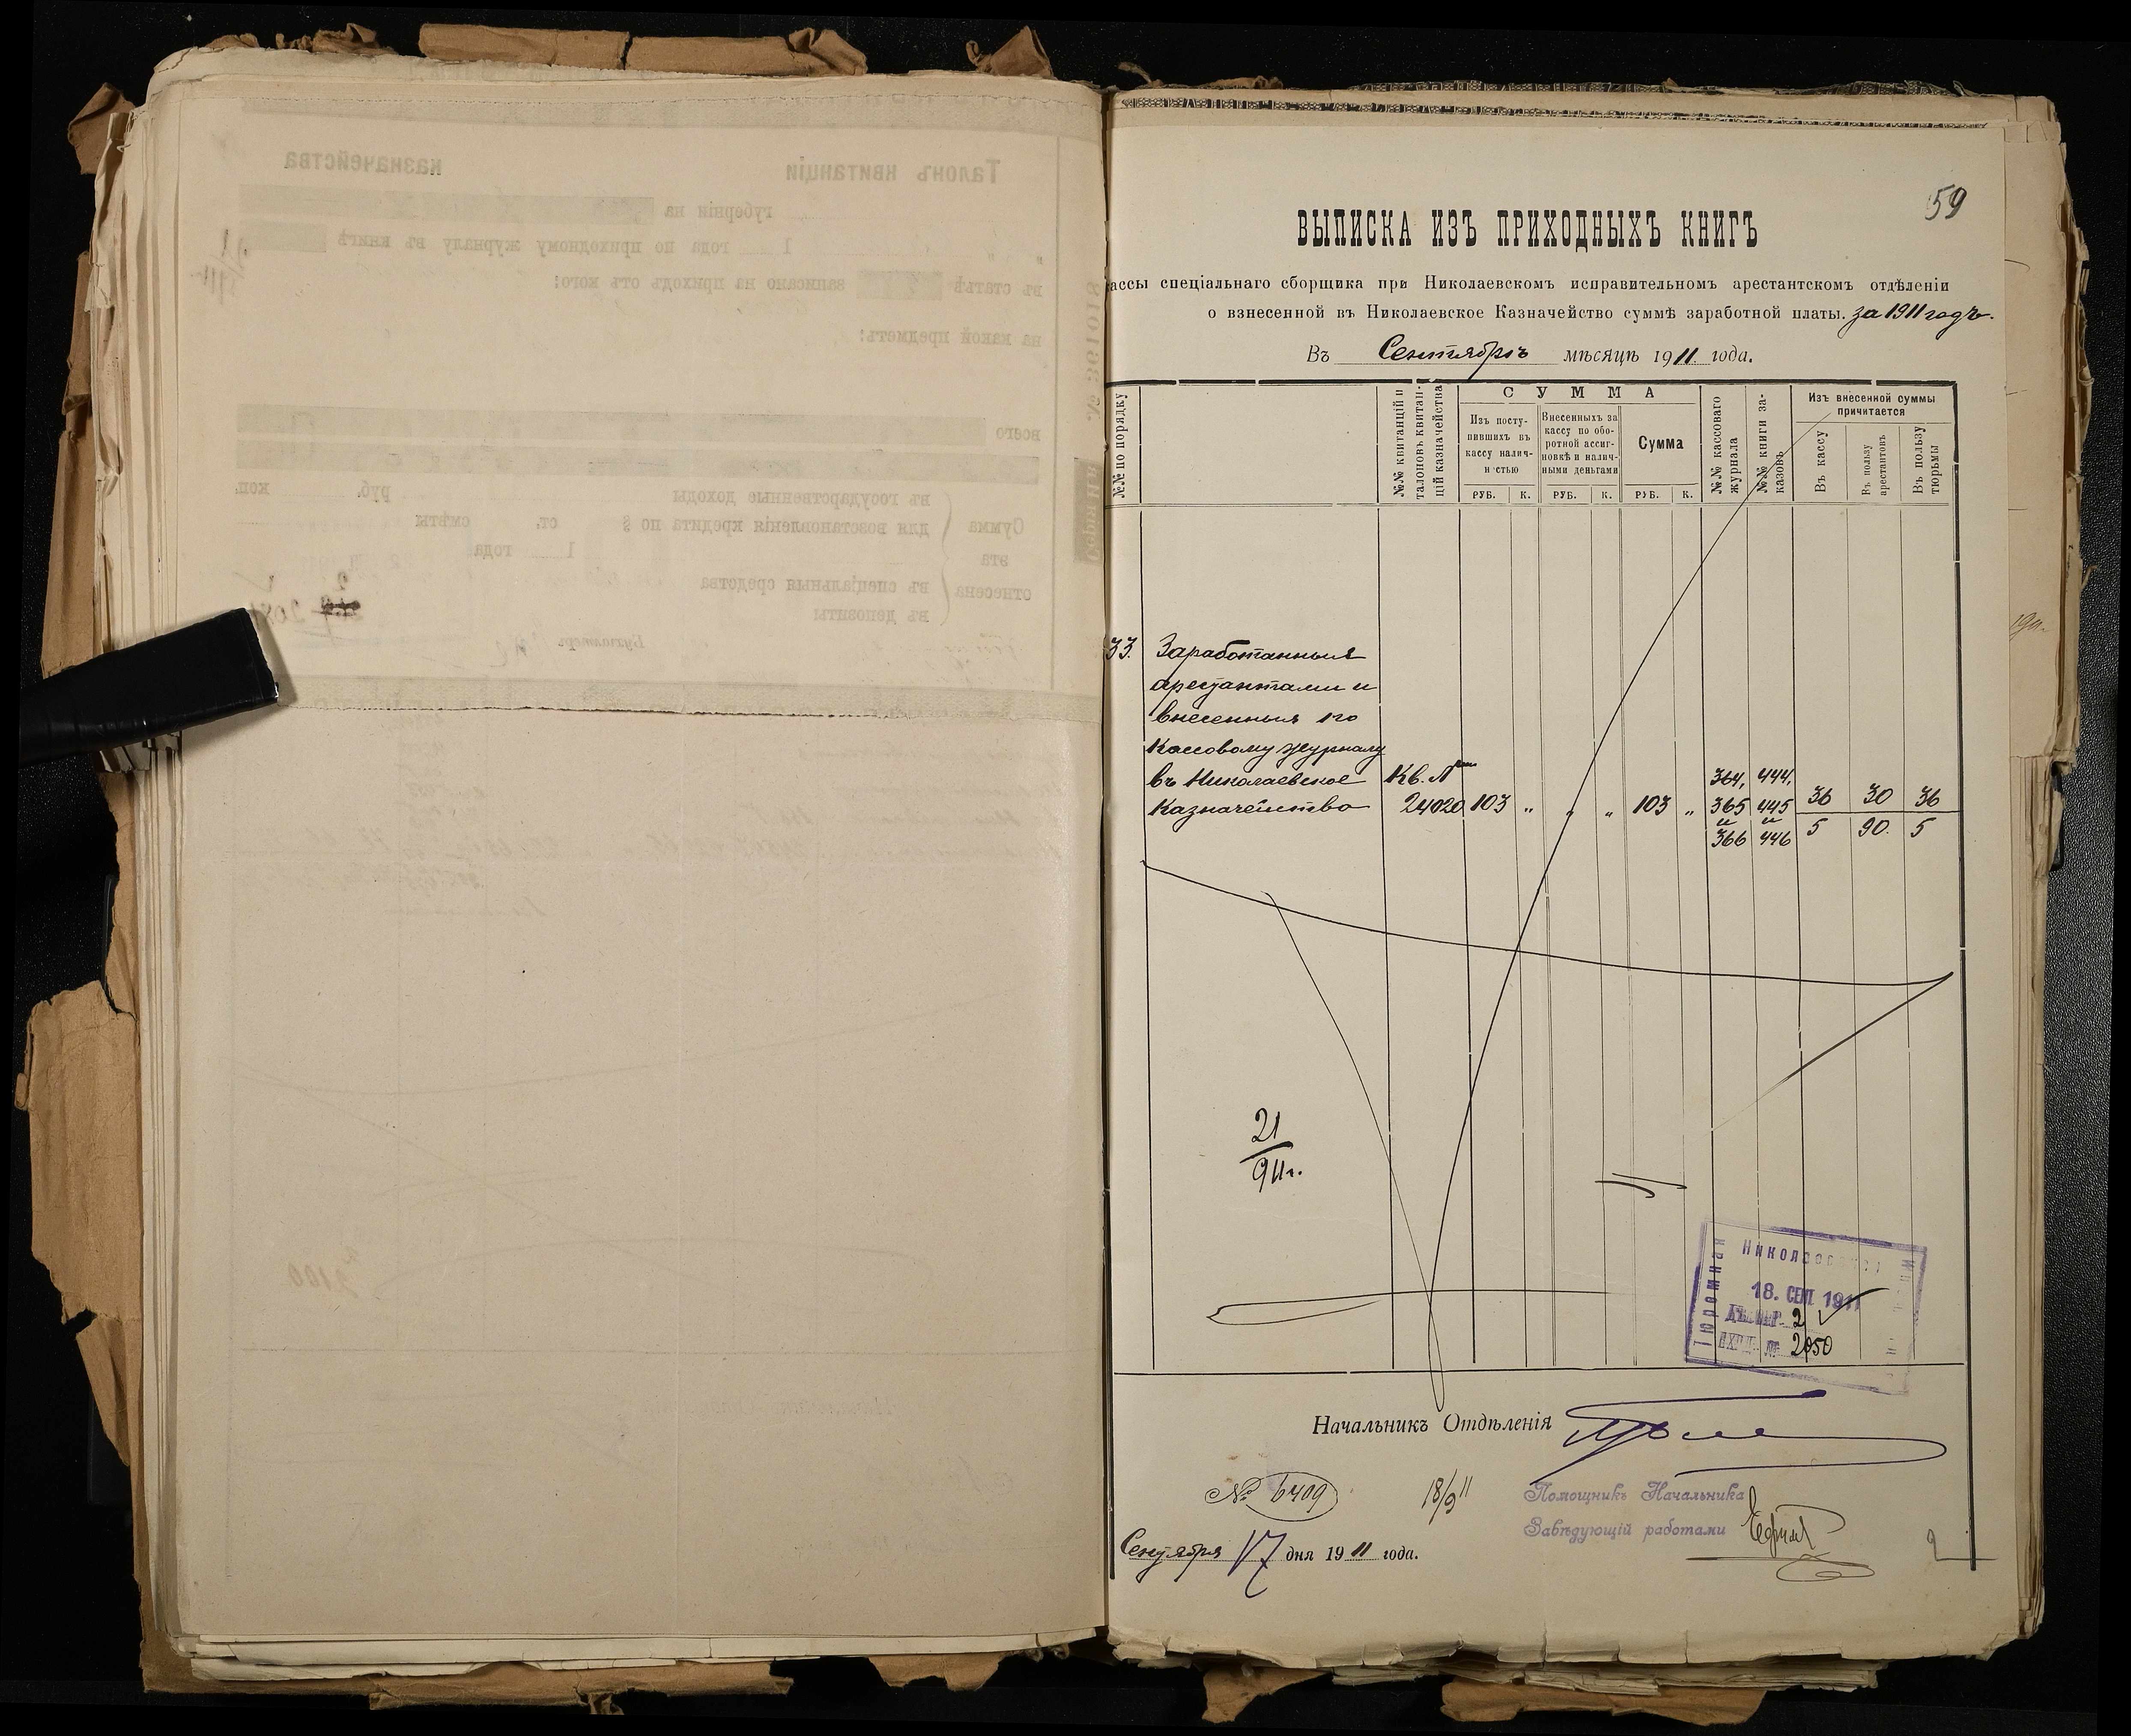 59
ВЫПИСКА ИЗЪ ПРИХОДНЫХЪ КНИГЪ
ассы спеціальнаго сборщика при Николаевскомъ исправительномъ арестантскомъ отдѣленіи
о взнесенной въ Николаевское Казначейство суммѣ заработной платы. за 1911 годъ.
Въ Сентябрѣ мѣсяцѣ 1911 года.
№№ по порядку
№№ квитанцій и талоновъ квитанцій казначейства
СУММА
Изъ поступившихъ въ кассу наличностью
Внесенныхъ за кассу по оборотной ассигновкѣ и наличными деньгами
Сумма
РУБ. К. РУБ. К. РУБ. К.
№№ кассоваго журнала
№№ книги заказовъ
Изъ внесенной суммы причитается
Въ кассу
Въ пользу арестантовъ
Въ пользу тюрьмы
33. Заработанныя
арестантами и
внесенныя по
Кассовому журналу
въ Николаевское Кв. № 364, 444,
Казначейство 24020 103 „ „ „ 103 „ 365 445 36 30 36
и и 5 90. 5
366 446
21
911г.
Николаевская
Тюремная
18. СЕП. 1911
2
2050
Начальникъ Отдѣленія
№ 6409
18/9 11
Помощникъ Начальника
Завѣдующій работами
Сентября 17 дня 1911 года.
Талонъ квитанціи казначейства
губерніи на
1 года по приходному журналу въ книгѣ
въ статьѣ записано на приходъ отъ кого:
на какой предметъ:
всего
Сумма эта отнесена
въ государственные доходы руб. коп.
для возстановленія кредита по § ст. смѣты
1 года
въ спеціальныя средства
въ депозиты
Бухгалтеръ